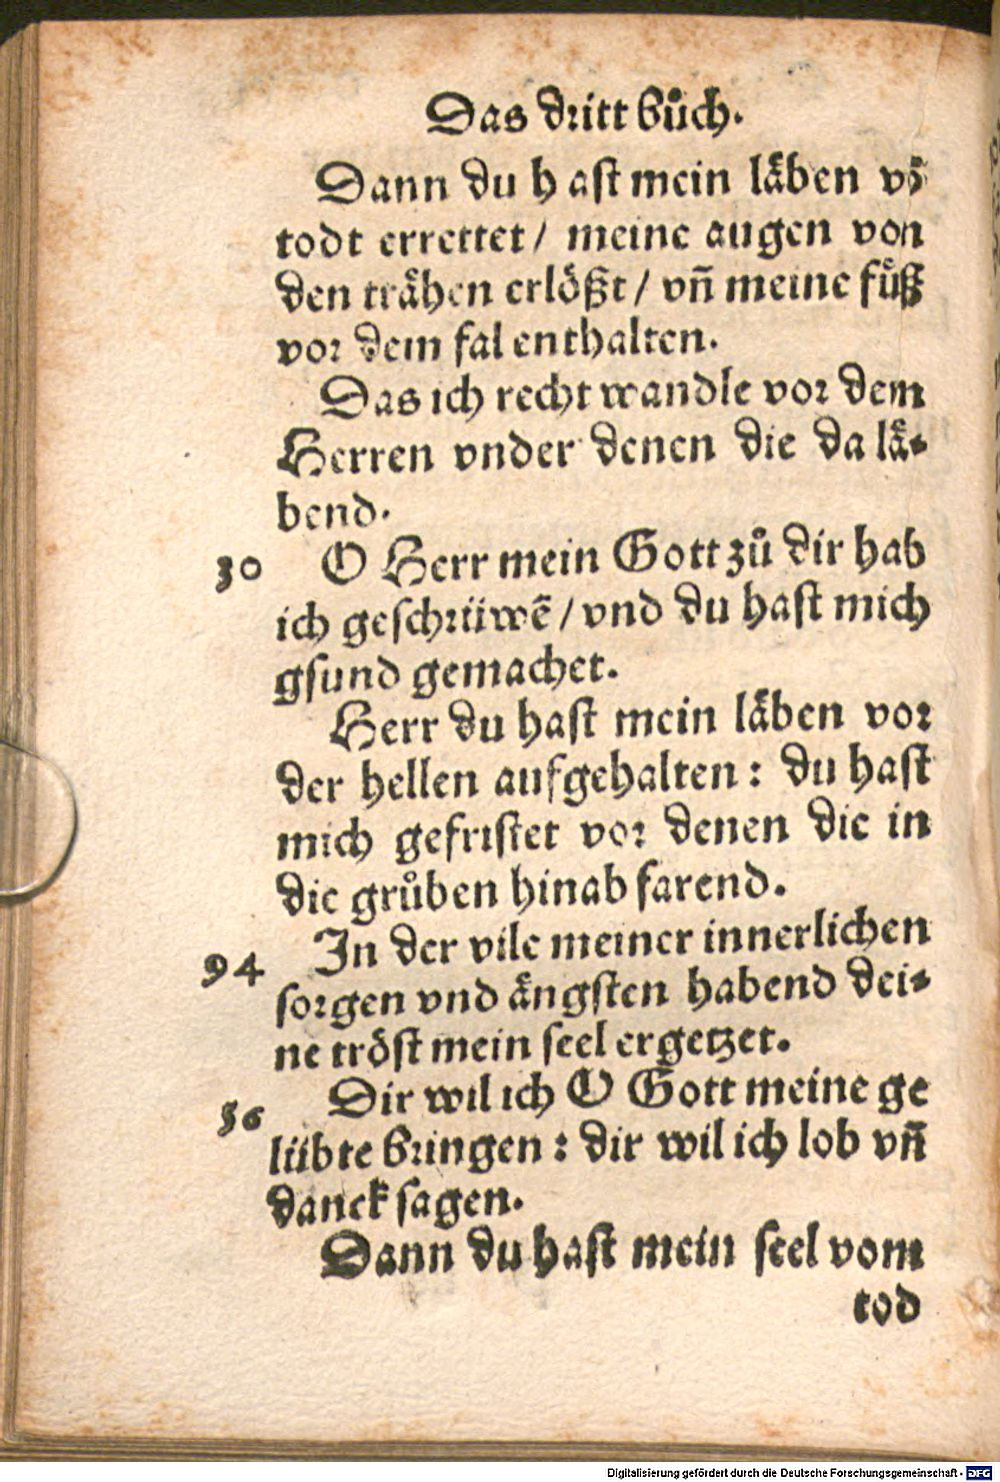 Das dritt bůch.
Dann du hast mein läben vō
todt errettet / meine augen von
den trähen erlößt / vñ meine fůß
vor dem fal enthalten.
Das ich recht wandle vor dem
Herren vnder denen die da lä-
bend.
30 O Herr mein Gott zů dir hab
ich geschrüwē / vnd du hast mich
gsund gemachet.
Herr du hast mein läben vor
der hellen aufgehalten : du hast
mich gefristet vor denen die in
die grůben hinab farend.
94 In der vile meiner innerlichen
sorgen vnd ängsten habend dei-
ne tröst mein seel ergetzet.
56 Dir wil ich O Gott meine ge
lübte bringen : dir wil ich lob vñ
danck sagen.
Dann du hast mein seel vom
tod
Digitalisierung gefördert durch die Deutsche Forschungsgemeinschaft - DFG